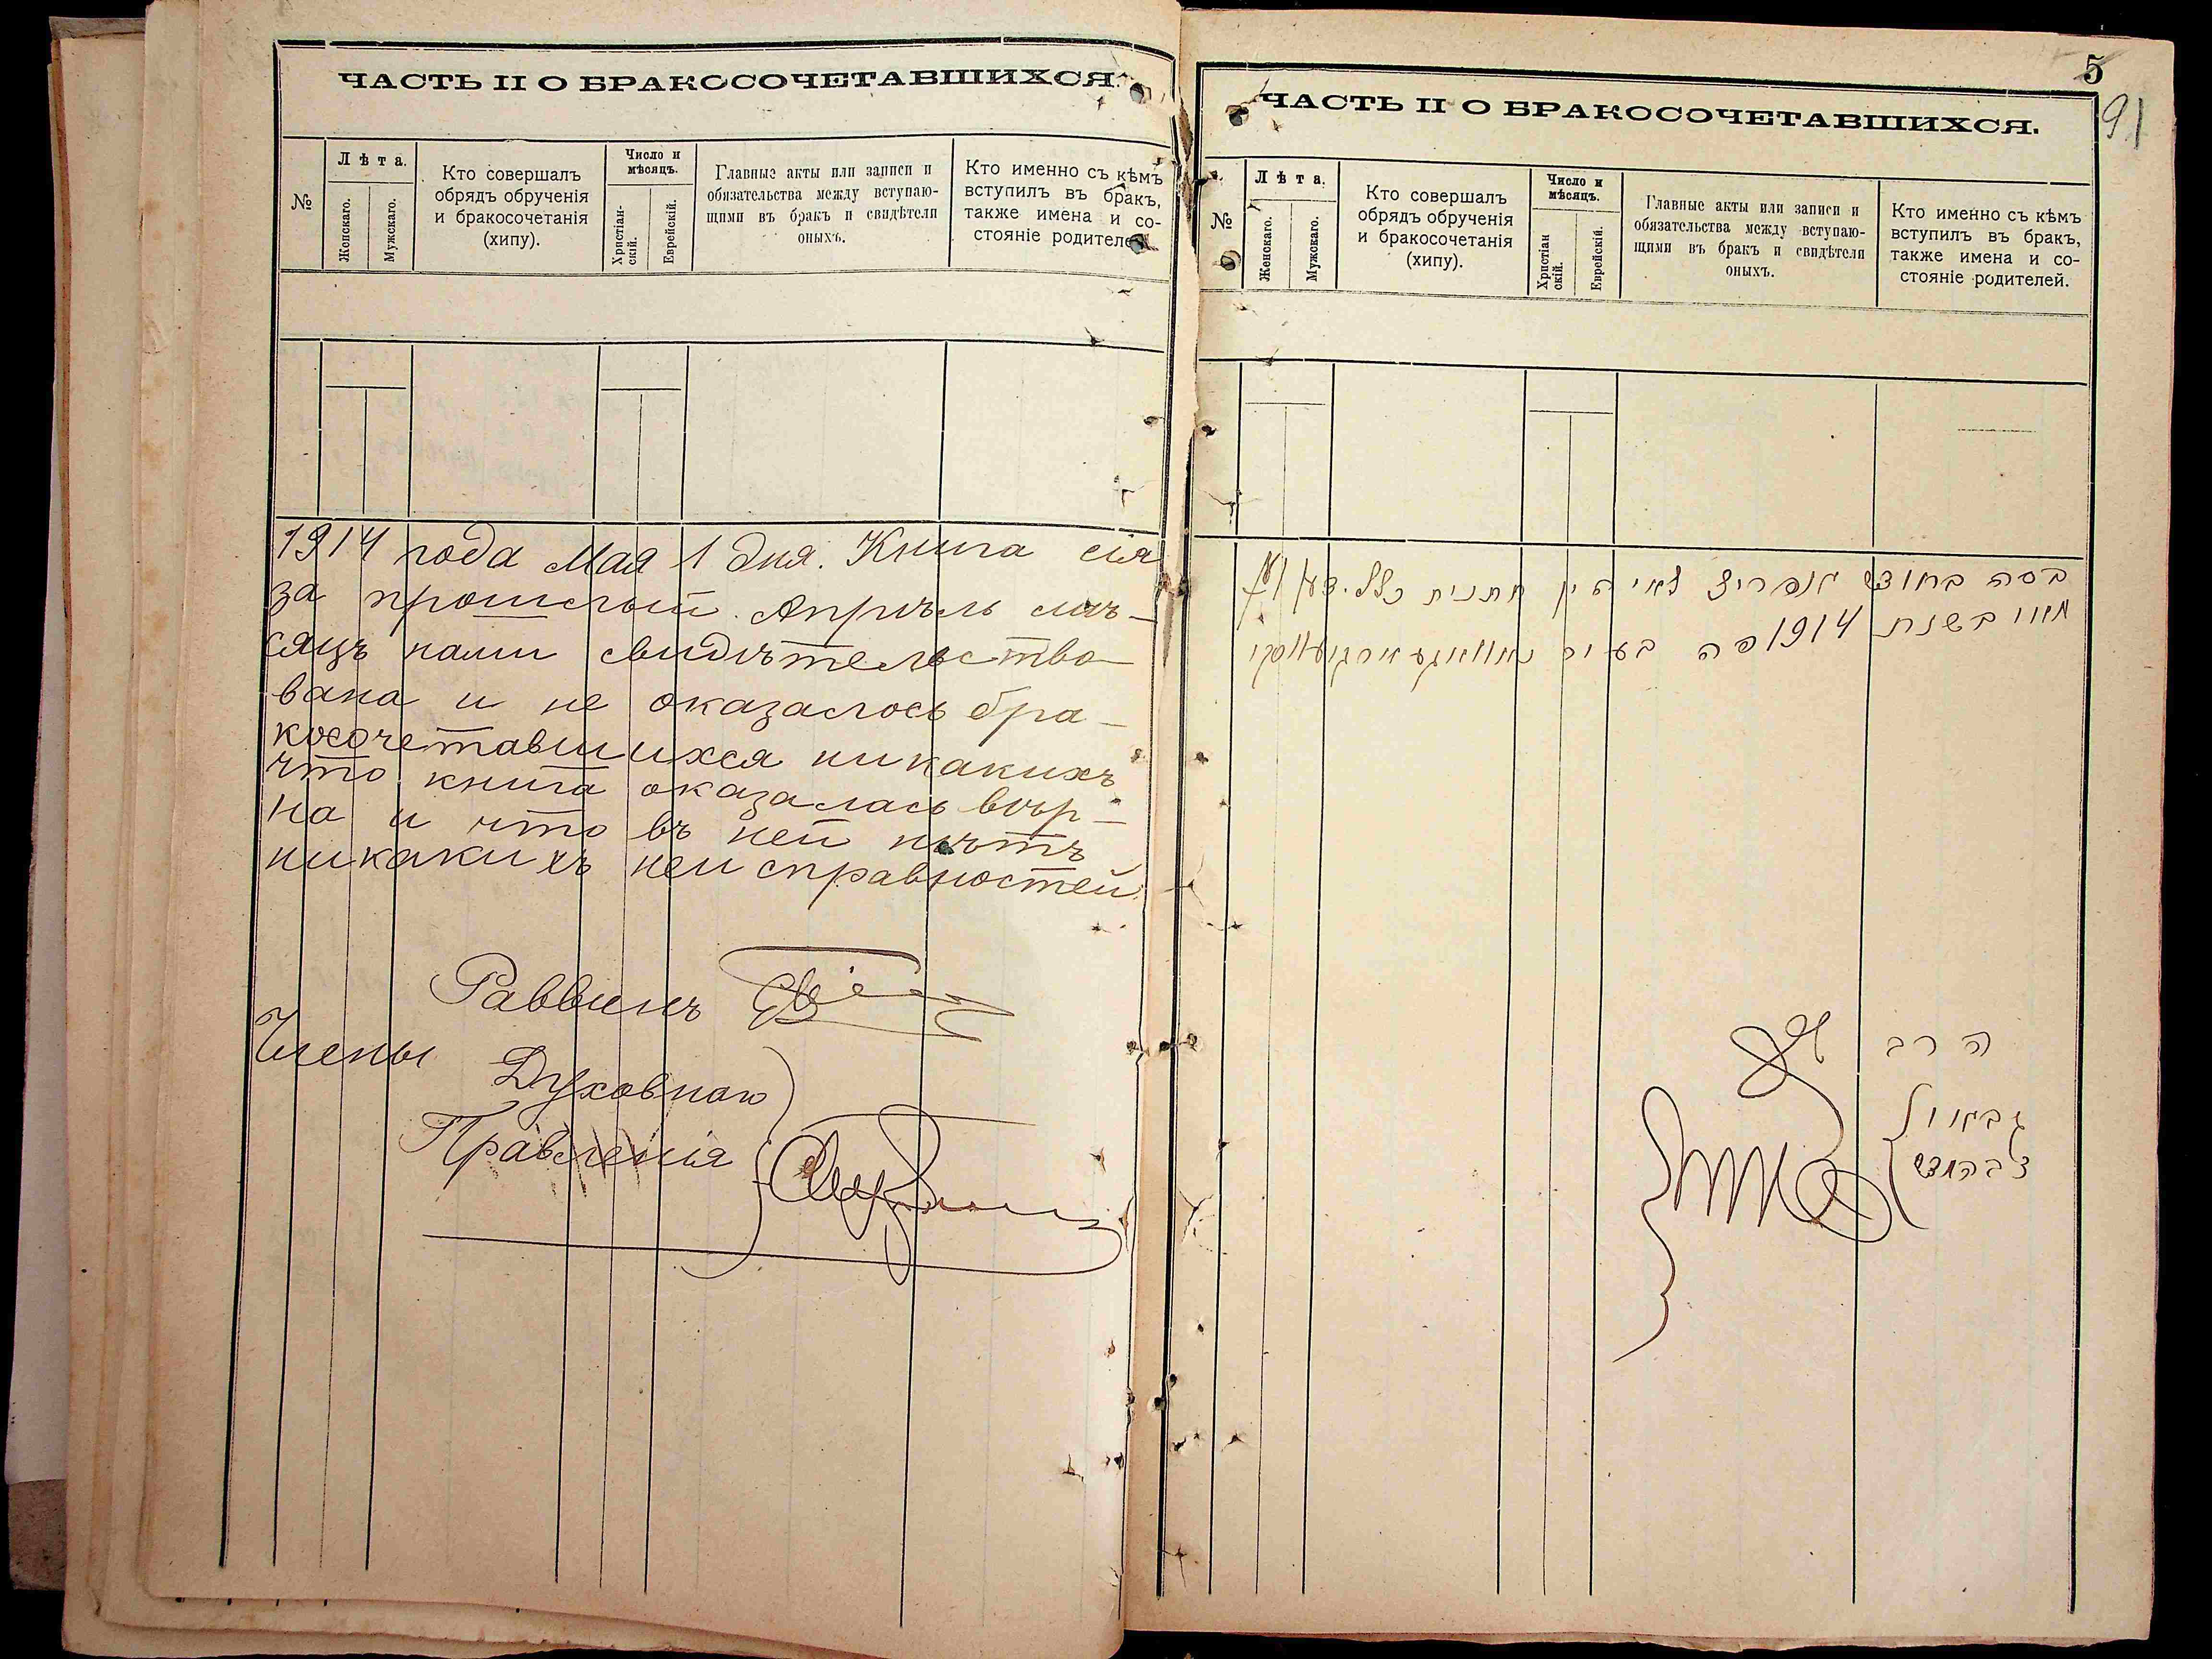 ЧАСТЬ II О БРАКОСОЧЕТАВШИХСЯ.
№
Лѣта.
Женскаго.
Мужскаго.
Кто совершалъ
обрядъ обрученія
и бракосочетанія
(хипу).
Число и
мѣсяцъ.
Христіан-
скій.
Еврейскій.
Главные акты или записи и
обязательства между вступаю-
щими въ бракъ и свидѣтели
оныхъ.
Кто именно съ кѣмъ
вступилъ въ бракъ,
также имена и со-
стояніе родителей.
1914 года Мая 1 дня. Книга сія
за прошлый Апрѣль мѣ-
сяцъ нами свидѣтельство
вана и не оказалось бра-
косочетавшихся никакихъ
что книга оказалась вѣр-
на и что въ ней нѣтъ
никакихъ неисправностей.
Раввинъ
Члены
Духовнаго
Правленія
5
91
ЧАСТЬ II О БРАКОСОЧЕТАВШИХСЯ.
№
Лѣта.
Женскаго.
Мужскаго.
Кто совершалъ
обрядъ обрученія
и бракосочетанія
(хипу).
Число и
мѣсяцъ.
Христіан
скій.
Еврейскій.
Главные акты или записи и
обязательства между вступаю-
щими въ бракъ и свидѣтели
оныхъ.
Кто именно съ кѣмъ
вступилъ въ бракъ,
также имена и со-
стояніе родителей.
בחודש אפריל חתנות כלל
מאי בשנת 1914 פה בעיר
הרב